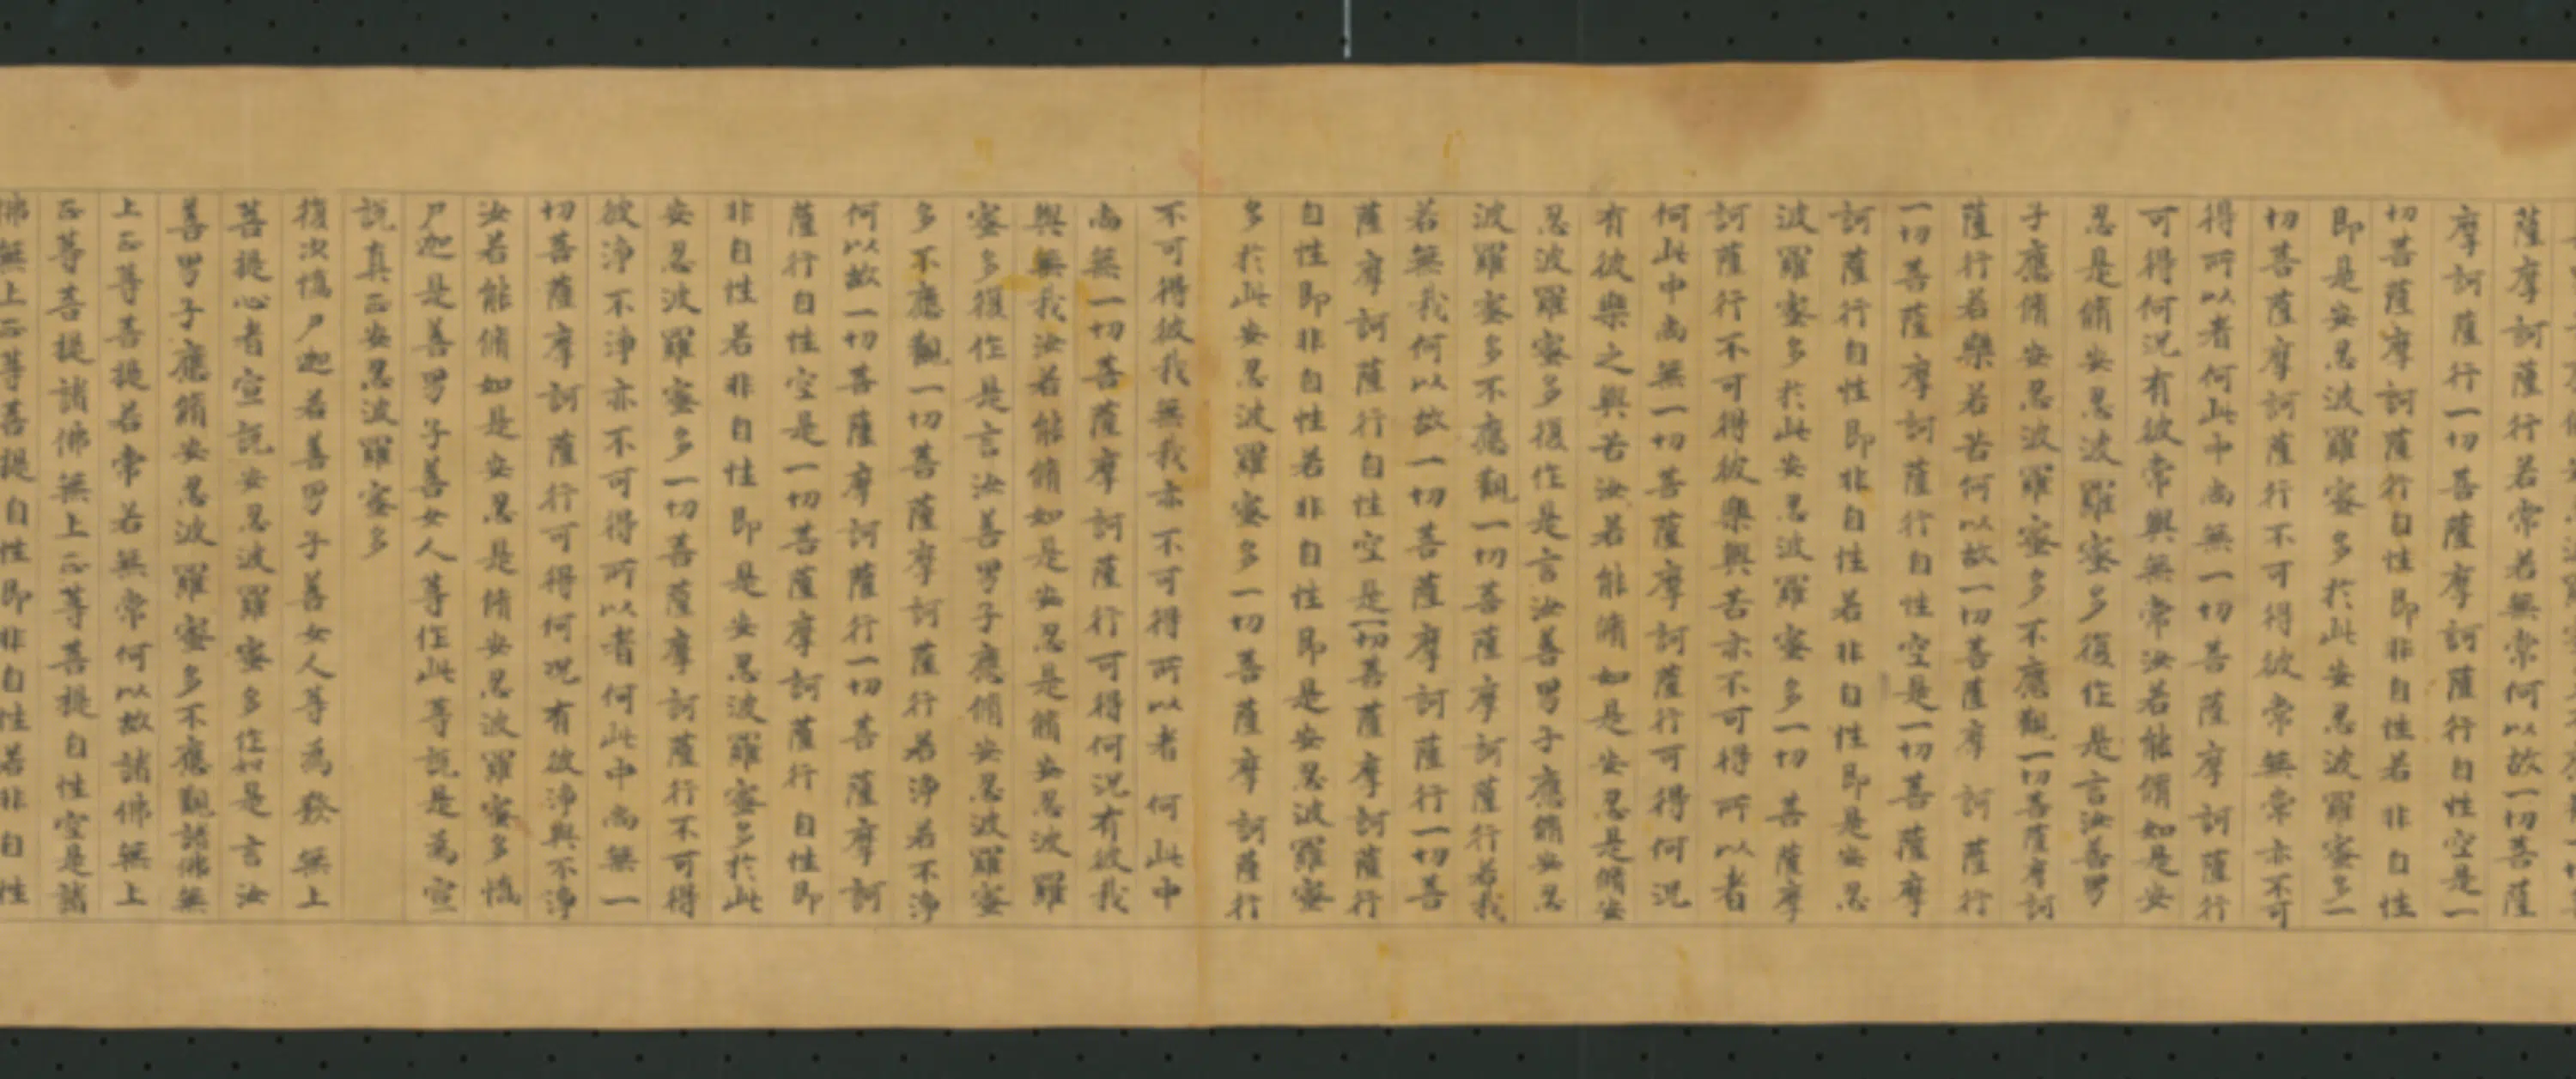 薩摩訶薩行若常若無常何以故一切菩薩
摩訶薩行一切菩薩摩訶薩行自性空是一
切菩薩摩訶薩行自性即非自性若非自性
即是安忍波羅蜜多於此安忍波羅蜜多一
切菩薩摩訶薩行不可得彼常無常亦不可
得所以者何此中尚無一切菩薩摩訶薩行
可得何況有彼常與無常汝若能脩如是安
忍是脩安忍波羅蜜多復作是言汝善男
子應脩安忍波羅蜜多不應觀一切菩薩摩訶
薩行若樂若苦何以故一切菩薩摩訶薩行
一切菩薩摩訶薩行自性空是一切菩薩摩
訶薩行自性即非自性若非自性即是安忍
波羅蜜多於此安忍波羅蜜多一切菩薩摩
訶薩行不可得彼樂與苦亦不可得所以者
何此中尚無一切菩薩摩訶薩行可得何況
有彼樂之與苦汝若能脩如是安忍是脩安
忍波羅蜜多復作是言汝善男子應脩安忍
波羅蜜多不應觀一切菩薩摩訶薩行若我
若無我何以故一切菩薩摩訶薩行一切菩
薩摩訶薩行自性空是一切菩薩摩訶薩行
自性即非自性若非自性即是安忍波羅蜜
多於此安忍波羅蜜多一切菩薩摩訶薩行
不可得彼我無我亦不可得所以者何此中
尚無一切菩薩摩訶薩行可得何況有彼我
與無我汝若能脩如是安忍是脩安忍波羅
蜜多復作是言汝善男子應脩安忍波羅蜜
多不應觀一切菩薩摩訶薩行若淨若不淨
何以故一切菩薩摩訶薩行一切菩薩摩訶
薩行自性空是一切菩薩摩訶薩行自性即
非自性若非自性即是安忍波羅蜜多於此
安忍波羅蜜多一切菩薩摩訶薩行不可得
彼淨不淨亦不可得所以者何此中尚無一
切菩薩摩訶薩行可得何況有彼淨與不淨
汝若能脩如是安忍是脩安忍波羅蜜多憍
尸迦是善男子善女人等作此等說是為宣
說真正安忍波羅蜜多
復次憍尸迦若善男子善女人等為發無上
菩提心者宣說安忍波羅蜜多作如是言汝
善男子應脩安忍波羅蜜多不應觀諸佛無
上正等菩提若常若無常何以故諸佛無上
正等菩提諸佛無上正等菩提自性空是諸
佛無上正等菩提自性即非自性若非自性